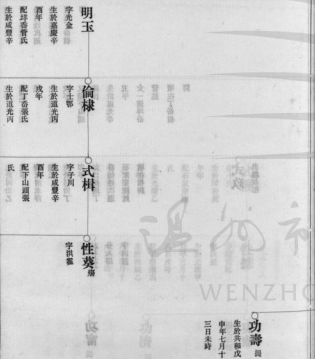 明玉
字光金
生於嘉慶辛
酉年
配埄岙曾氏
生於咸豐辛
倫棣
字士鄂
生於道光丙
戌年
配丁岙張氏
生於道光丙
式楫
字子川
生於咸豐辛
酉年
配下山頭張
氏
性葵
字洪
功壽
生於共和戊
申年七月十
三日未時
溫州市
WENZHO